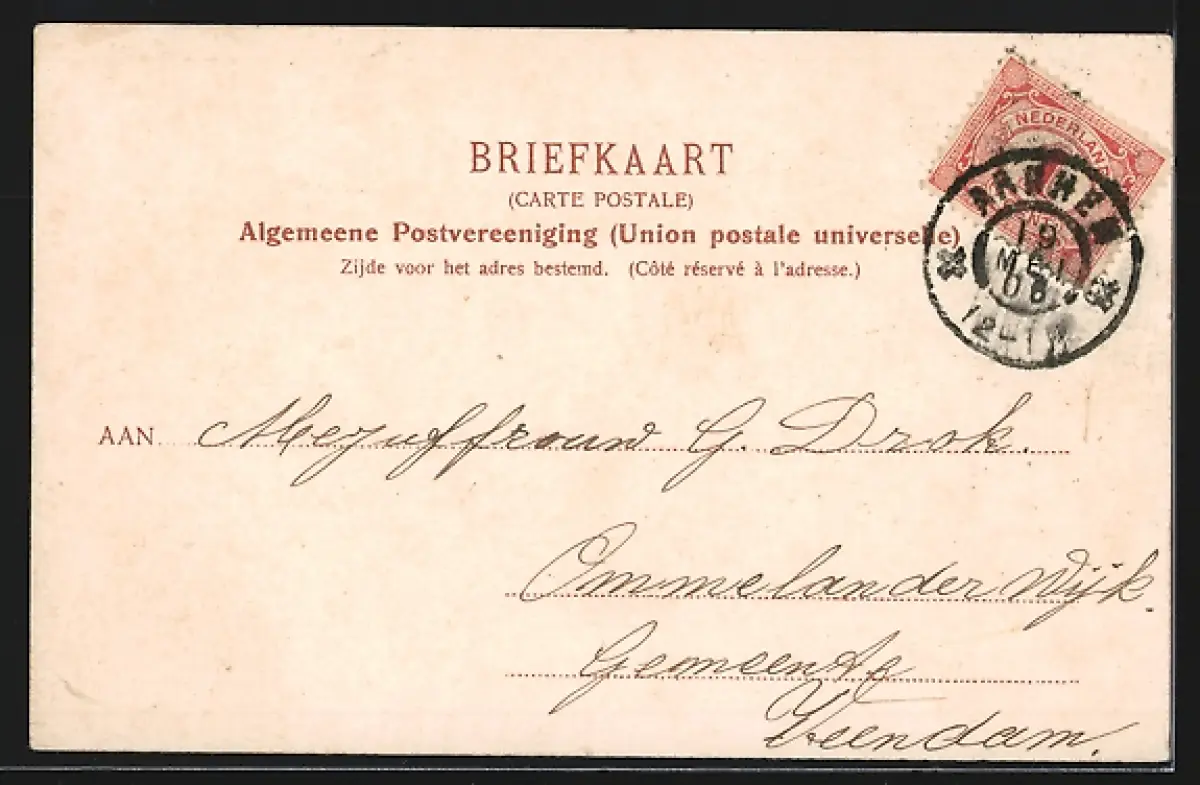 BRIEFKAART
(CARTE POSTALE)
Algemeene Postvereeniging (Union postale universelle)
Zijde voor het adres bestemd. (Côté réservé à l'adresse.)
NEDERLAND
ARNHEM
19
MEI
12-1
AAN Mejuffrouw G. Drok.
Ommelanderwijk.
Gemeente
Veendam.